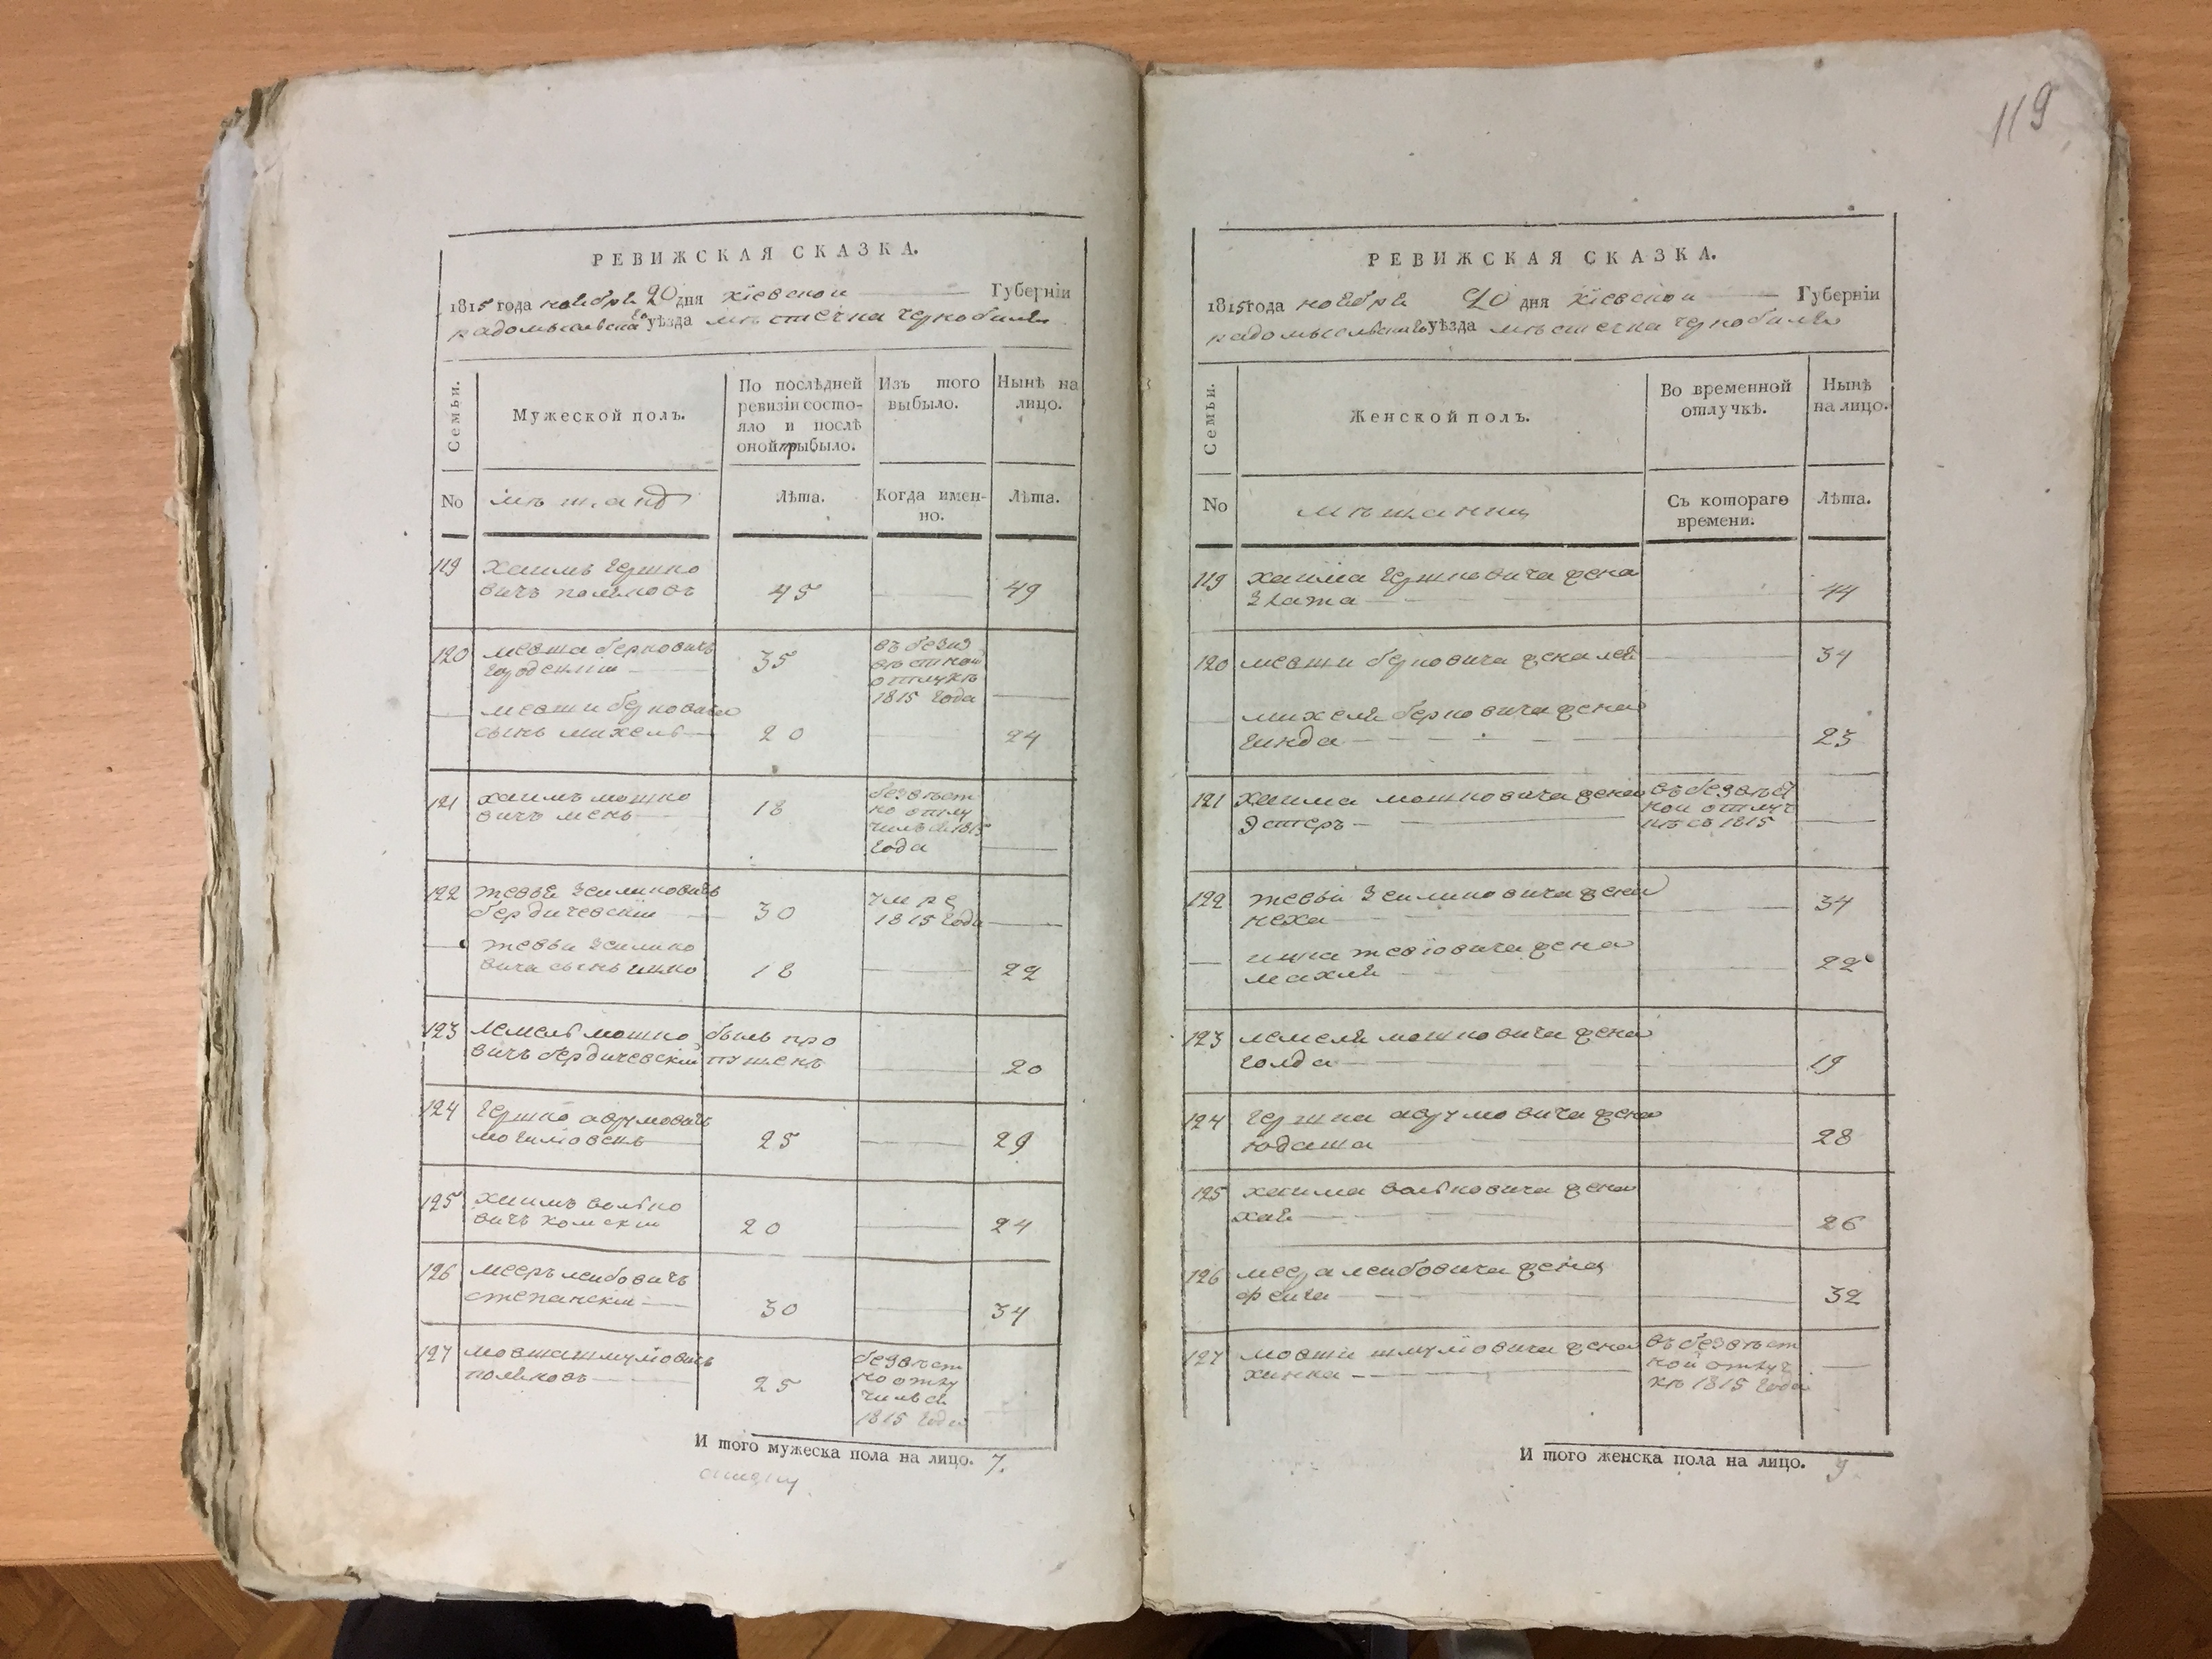 119
РЕВИЖСКАЯ СКАЗКА.
1815 года ноября 20 дня кіевской Губерніи
радомысельскаго уѣзда мѣстечка чернобиля
Семьи.
Мужеской полъ.
По послѣдней
ревизіи состо-
яло и послѣ
оной прибыло.
Изъ того
выбыло.
Нынѣ на
лицо.
No
мѣщанъ
Лѣта.
Когда имен-
но.
Лѣта.
119 хаимъ гершко
вичъ поляковъ 45 49
120 мевша берковичъ 35 въ безиз
городскіи
вѣстной
отлукѣ
1815 года
мевши берковича
сынъ михель 20 24
121 хаимъ мошко 18 безвѣст
вичъ мень
но отлу
чился 1815
года
122 тевье зеликовичъ 30 умре
бердичевскіи 1815 года
тевьи зелико
вича сынъ ицко 18 22
123 лемель мошко былъ про
вичъ бердичевскіи пущенъ 20
124 гершко аврумовичъ
25 29
125 хаимъ волько
вичъ комскіи 20 24
126 мееръ леибовичъ
степанскіи 30 34
127 мовша шмуйловичъ безвѣст
поляковъ 25 но отлу
чился
1815 года
И того мужеска пола на лицо. 7.
РЕВИЖСКАЯ СКАЗКА.
1815 года ноября 20 дня кіевской Губерніи
радомысельскаго уѣзда мѣстечка чернобиля
Семьи.
Женской полъ.
Во временной
отлучкѣ.
Нынѣ
на лицо.
No
мѣщанки
Съ котораго
времени.
Лѣта.
119 хаима гершковича жена
злата 44
120 мевши берковича жена лея 34
михеля берковича жена
гинда 23
121 хаима мошковича жена въ безвѣст
эстеръ
ной отлуч
кѣ съ 1815
122 тевьи зеликовича жена 34
неха
ицка тевіовича жена
махля 22
123 лемеля мошковича жена
голда 19
124 гершка аврумовича жена
юдаша 28
125 хаима вольковича жена
хая 26
126 меера леибовича жена
феига 32
127 мовши шмуйловича жена въ безвѣст
хинка
ной отлуч
кѣ 1815 года
И того женска пола на лицо. 9